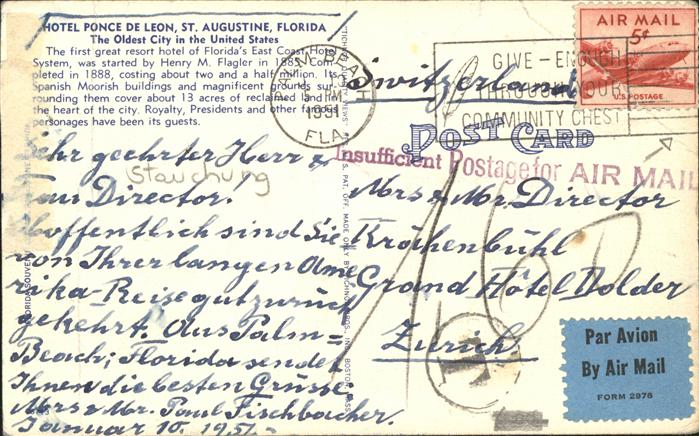 HOTEL PONCE DE LEON, ST. AUGUSTINE, FLORIDA
The Oldest City in the United States
The first great resort hotel of Florida's East Coast Hotel
System, was started by Henry M. Flagler in 1885. Com-
pleted in 1888, costing about two and a half million. Its
Spanish Moorish buildings and magnificent grounds sur-
rounding them cover about 13 acres of reclaimed land in
the heart of the city. Royalty, Presidents and other famous
personages have been its guests.
Sehr geehrter Herr &
Frau Director!
Stauchung
Hoffentlich sind Sie
von Ihrer langen Ame
rika-Reise gut zurück
gekehrt. Aus Palm=
Beach; Florida sendet
Ihnen die besten Grüsse:
Mrs & Mr. Paul Fischbacher.
Januar 10. 1951.-
PALM BEACH
PM
1951
FLA.
GIVE - ENOUGH
THROUGH YOUR
COMMUNITY CHEST
AIR MAIL
5¢
U.S. POSTAGE
Switzerland
POST CARD
Insufficient Postage for AIR MAIL
Mrs & Mr. Director
Kröchenbühl
Grand Hôtel Dolder
Zurich
T
Par Avion
By Air Mail
FORM 2976